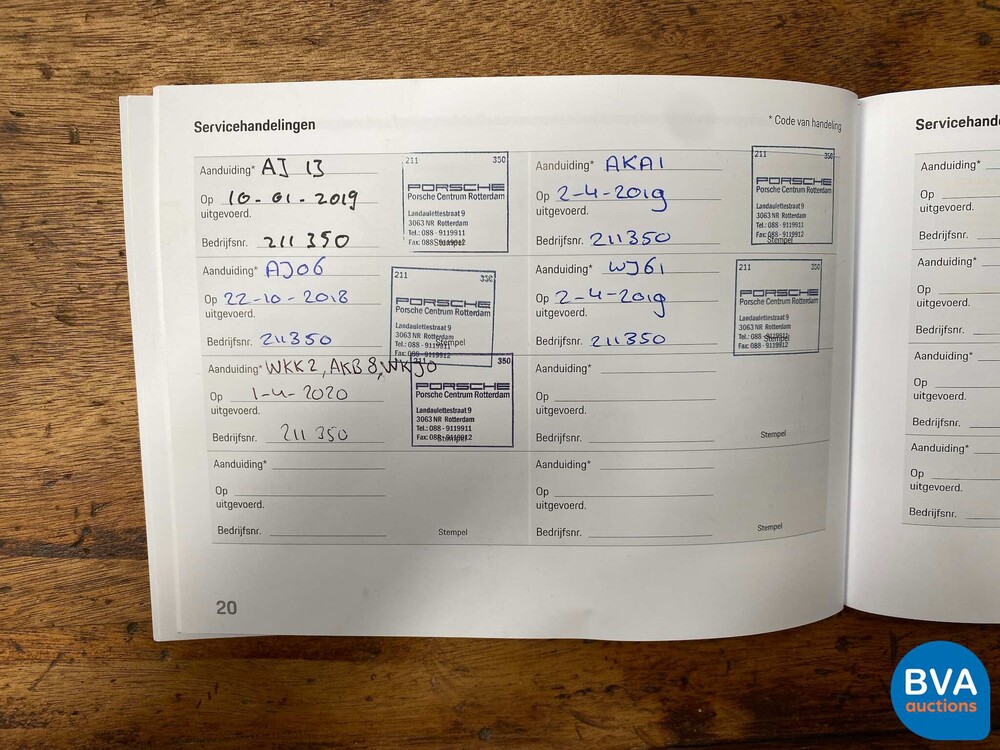 Servicehandelingen
* Code van handeling
Aanduiding* AJ 13
Op 10-01-2019
uitgevoerd.
Bedrijfsnr. 211350
211 350
PORSCHE
Porsche Centrum Rotterdam
Landaulettestraat 9
3063 NR Rotterdam
Tel.: 088 - 9119911
Fax: 088 - 9119912
Stempel
Aanduiding* AKA1
Op 2-4-2019
uitgevoerd.
Bedrijfsnr. 211350
211 350
PORSCHE
Porsche Centrum Rotterdam
Landaulettestraat 9
3063 NR Rotterdam
Tel.: 088 - 9119911
Fax: 088 - 9119912
Stempel
Aanduiding* AJ06
Op 22-10-2018
uitgevoerd.
Bedrijfsnr. 211350
211 350
PORSCHE
Porsche Centrum Rotterdam
Landaulettestraat 9
3063 NR Rotterdam
Tel.: 088 - 9119911
Fax: 088 - 9119912
Stempel
Aanduiding* WJ61
Op 2-4-2019
uitgevoerd.
Bedrijfsnr. 211350
211 350
PORSCHE
Porsche Centrum Rotterdam
Landaulettestraat 9
3063 NR Rotterdam
Tel.: 088 - 9119911
Fax: 088 - 9119912
Stempel
Aanduiding* WKK2, AKB8, WKJ0
Op 1-4-2020
uitgevoerd.
Bedrijfsnr. 211350
350
PORSCHE
Porsche Centrum Rotterdam
Landaulettestraat 9
3063 NR Rotterdam
Tel.: 088 - 9119911
Fax: 088 - 9119912
Stempel
Aanduiding*
Op
uitgevoerd.
Bedrijfsnr.
Stempel
Aanduiding*
Op
uitgevoerd.
Bedrijfsnr.
Stempel
Aanduiding*
Op
uitgevoerd.
Bedrijfsnr.
Stempel
20
Aanduiding*
Op
uitgevoerd.
Bedrijfsnr.
Aanduiding*
Op
uitgevoerd.
Bedrijfsnr.
Aanduiding*
Op
uitgevoerd.
Bedrijfsnr.
Aanduiding*
Op
uitgevoerd.
Bedrijfsnr.
BVA
auctions